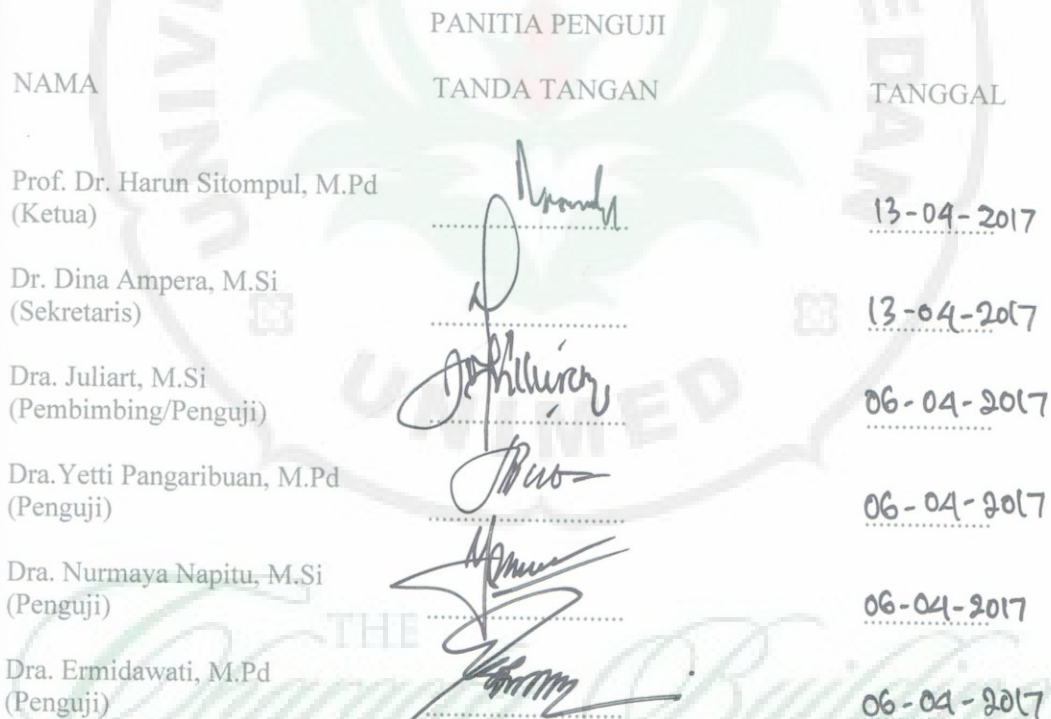 PANITIA PENGUJI
NAMA TANDA TANGAN TANGGAL
Prof. Dr. Harun Sitompul, M.Pd
(Ketua) 13-04-2017
Dr. Dina Ampera, M.Si
(Sekretaris) 13-04-2017
Dra. Juliart, M.Si
(Pembimbing/Penguji) 06-04-2017
Dra.Yetti Pangaribuan, M.Pd
(Penguji) 06-04-2017
Dra. Nurmaya Napitu, M.Si
(Penguji) 06-04-2017
Dra. Ermidawati, M.Pd
(Penguji) 06-04-2017
UNIMED
THE
Building